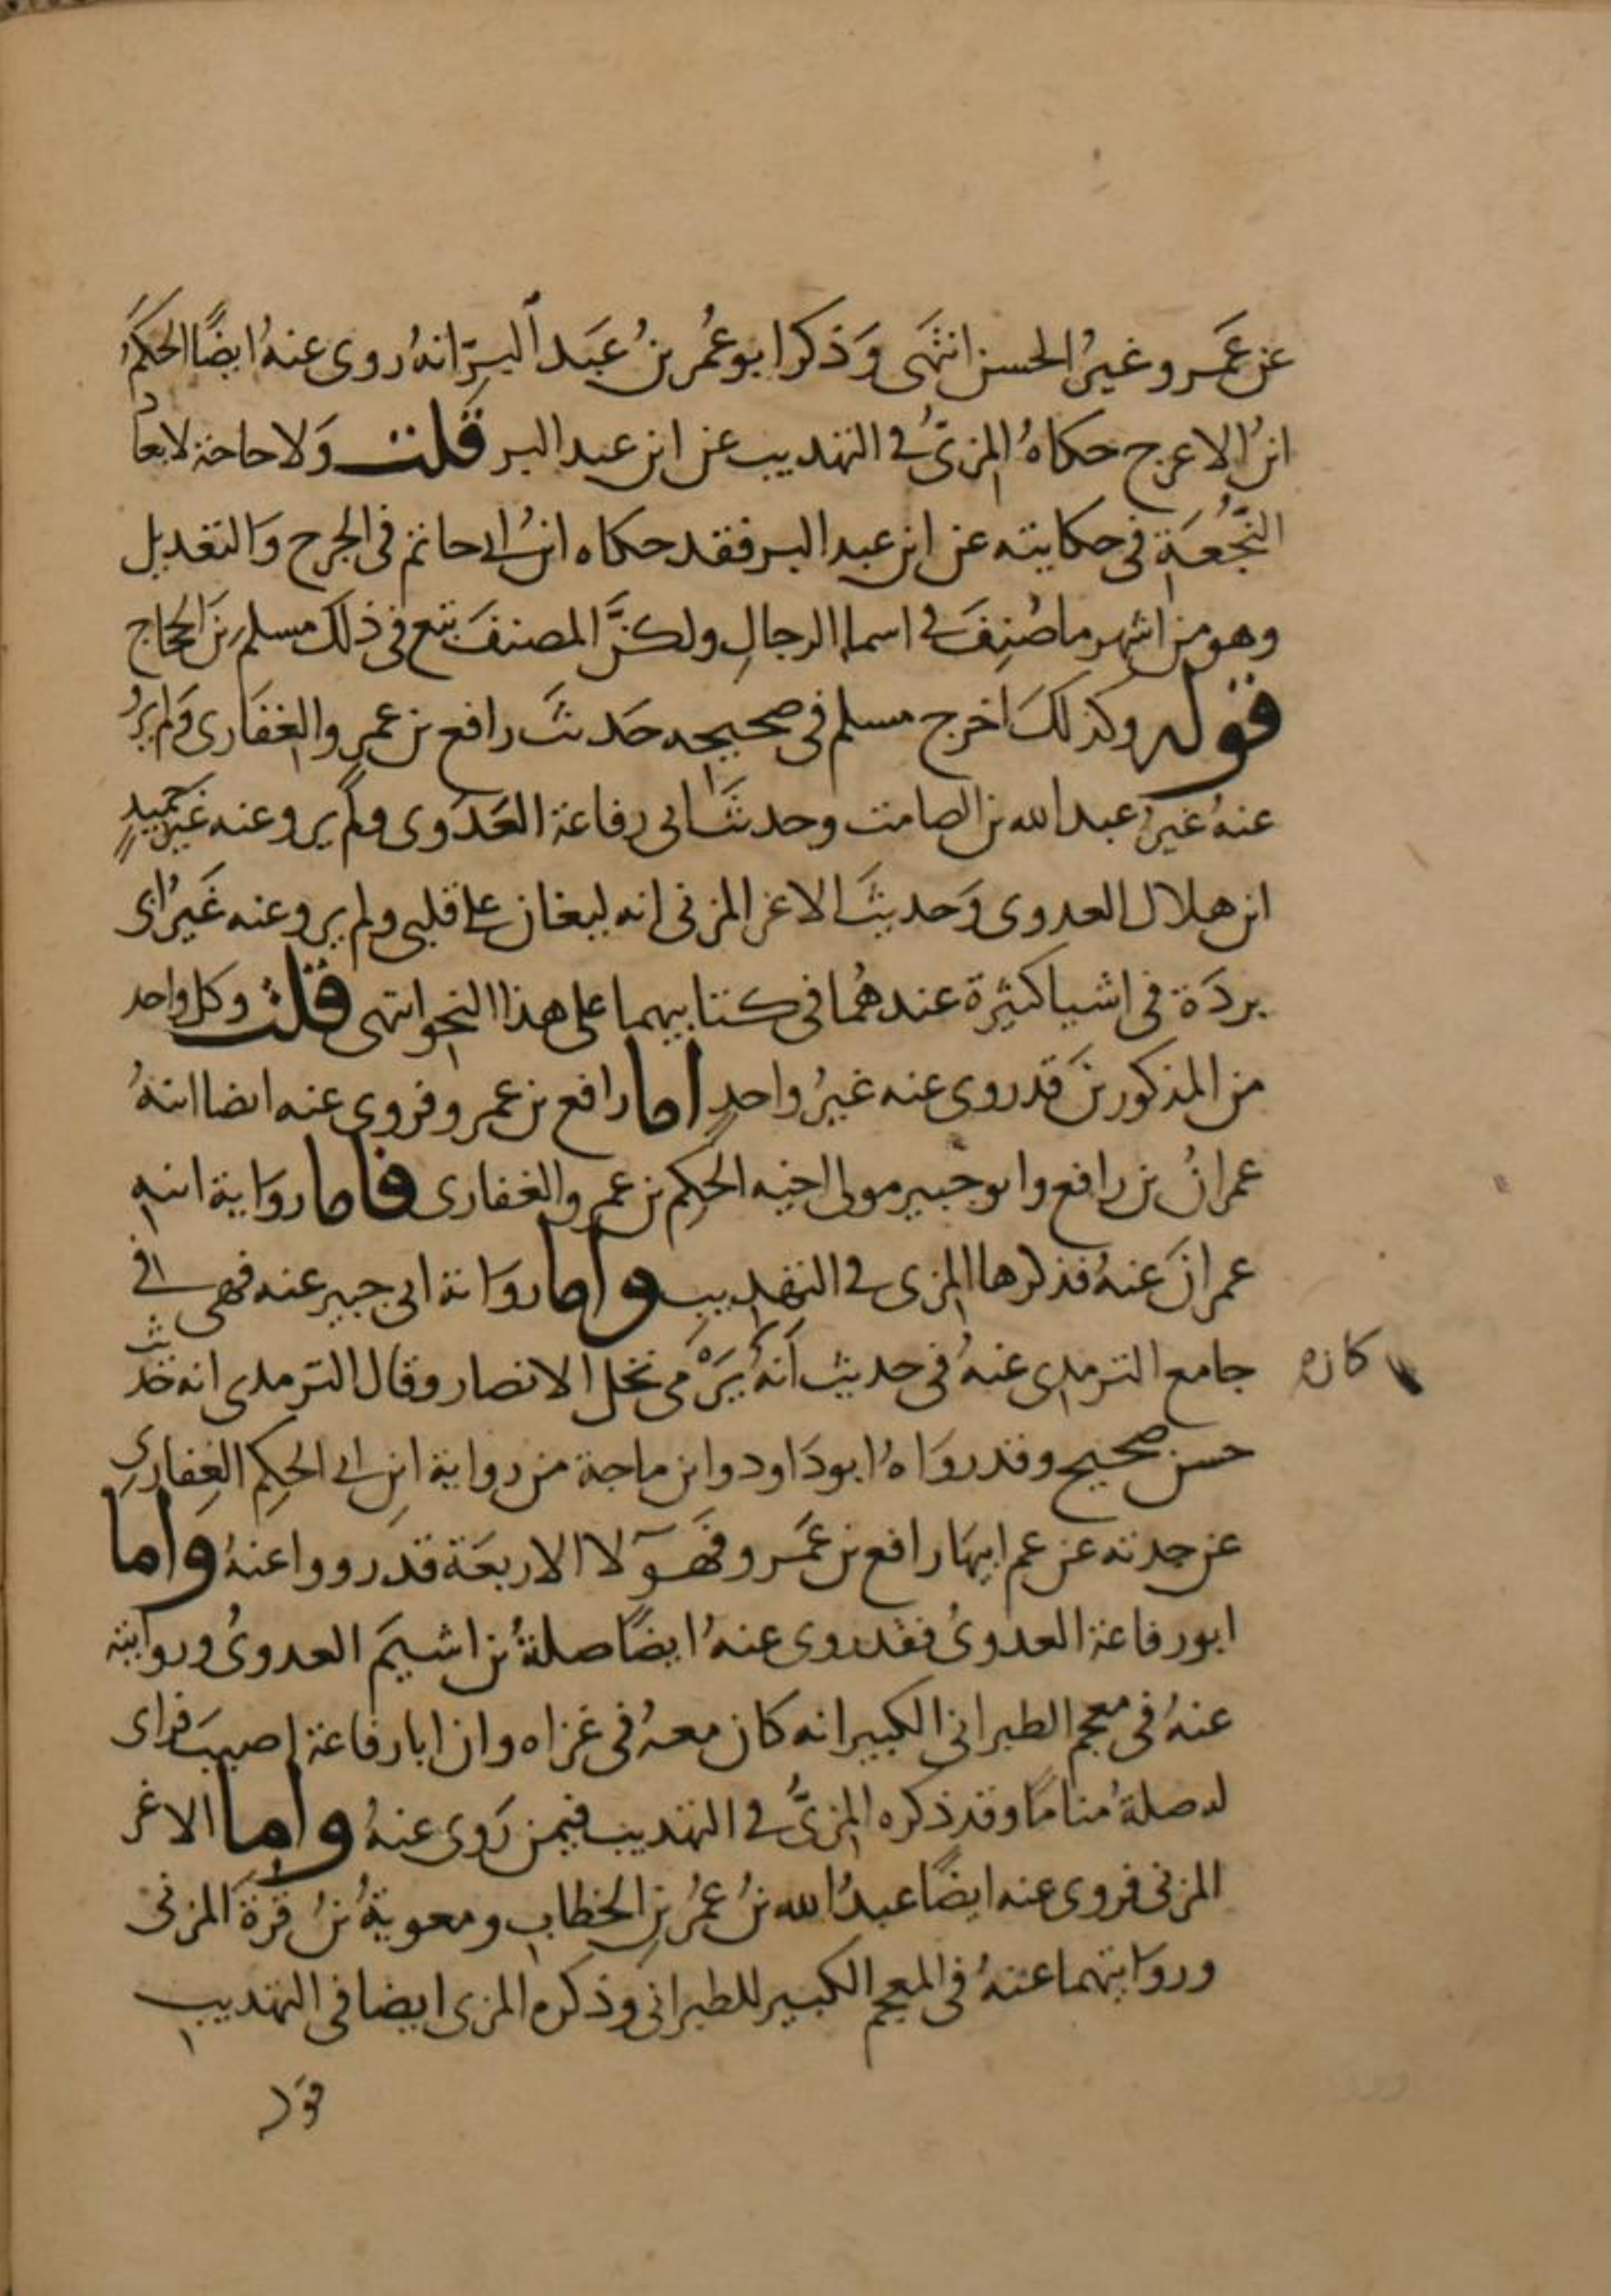 عن عَمرو غيرُ الحسن انتهى وَذكر ابو عُمر بنُ عَبد البرّ انهُ روى عنهُ ايضًا الحكمُ
ابنُ الاعرج حكاهُ المزىُّ في التهذيب عن ابن عبد البر قلت وَلا حاجة لابعاد
النُّجُعَة فى حكايته عن ابن عبد البر فقد حكاه ابنُ ابي حاتم فى الجرح وَالتعديل
وهو من اشهر ما صُنِفَ في اسما الرجالِ ولكنَّ المصنفَ تبع فى ذلك مسلم بن الحجاج
قوله وكذلكَ اخرج مسلم فى صحيحه حَديثَ رافع بن عمرو الغفَارى وَلم يَرو
عنهُ غيرُ عبد الله بن الصامت وحديثَ ابى رفاعة العَدَوى ولم يرو عنه غيرُ حُميدِ
ابن هلال العدوى وَحديثَ الاغر المزنى انه ليغان على قلبى ولم يرو عنه غَيرُ ابى
بردَة فى اشيا كثيرة عندهُما فى كتابيهما على هذا النحو انتهى قلت وكل واحد
من المذكورينَ قد روى عنه غيرُ واحدٍ اما رافع بن عمرو فروى عنه ايضا ابنهُ
عمرانُ بن رافع وابو جبير مولى اخيه الحكم بن عمرو الغفارى فاما روَاية ابنه
عمرانَ عنهُ فذكرها المزى في التهذيب واما روَاية ابى جبير عنه فهى في
جامع الترمذى عنهُ فى حديث انهُ يَرْمى نخل الانصار وقال الترمذى انه حَديث
كان
حسن صحيح وقد روَاهُ ابو دَاود وابن ماجة من رواية ابنِ ابي الحكمِ الغِفارِي
عن جدته عن عم ابيهَا رافع بن عَمرو فَهوَلا الاربعَة قدرووا عنهُ وَاما
ابو رفاعة العدوىُ فقد روى عنهُ ايضًا صلةُ بن اشيمَ العدوىُ وروايته
عنهُ فى معجم الطبرانى الكبير انه كان معهُ فى غزاه وان ابا رفاعة اصيبَ فراى
له صلةُ منامًا وقد ذكره المزىُّ في التهذيب فيمن رَوى عنهُ واما الاغر
المزنى فروى عنه ايضًا عبدُ الله بنُ عُمرُ بنِ الخطاب ومعويةُ بنُ قرةَ المزنى
وروَايتهما عنهُ فى المعجم الكبير للطبرانى وذكره المزى ايضا فى التهذيب
قوله